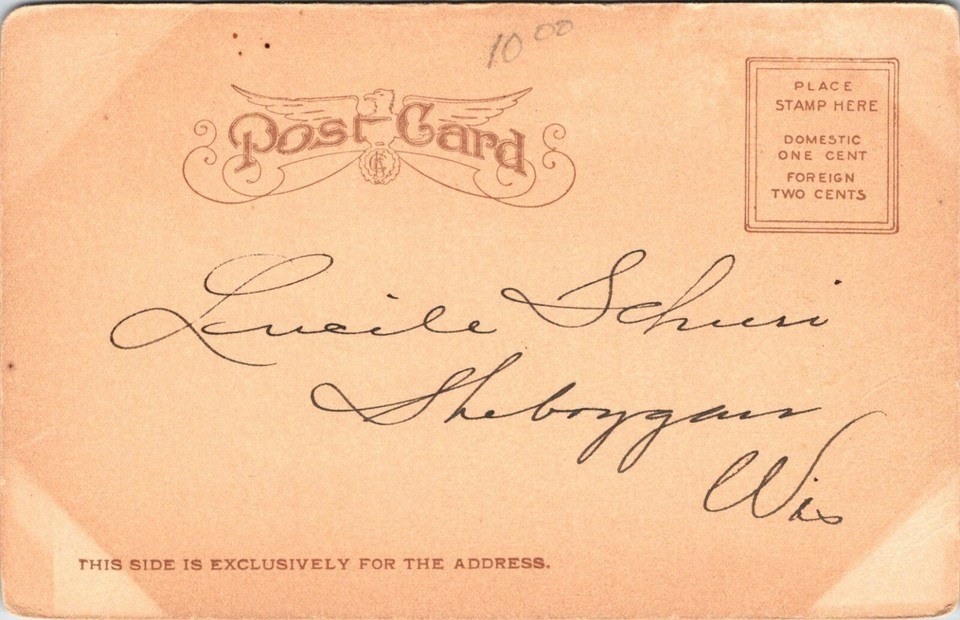 10 00
Post Card
PLACE
STAMP HERE
DOMESTIC
ONE CENT
FOREIGN
TWO CENTS
Lucile Schuri
Sheboygan
Wis
THIS SIDE IS EXCLUSIVELY FOR THE ADDRESS.